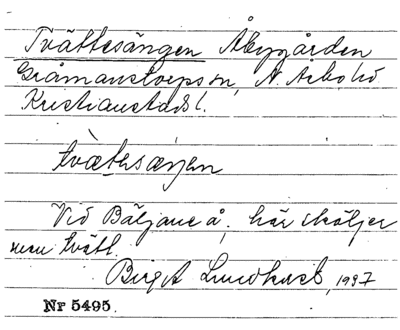 Tvättesängen Åbygården
Gråmanstorpssn, N. Åsbo hd
Kristianstads l.
tvætesæŋen
Vid Bäljane å, här sköljer
man tvätt.
Birgit Lundkvist, 1937
Nr 5495.